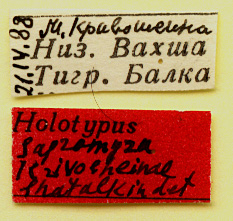 М. Кривошеина
Низ. Вахша
Тигр. Балка
21.IV.88
Holotypus
Sapromyza
krivosheinae
Shatalkin det